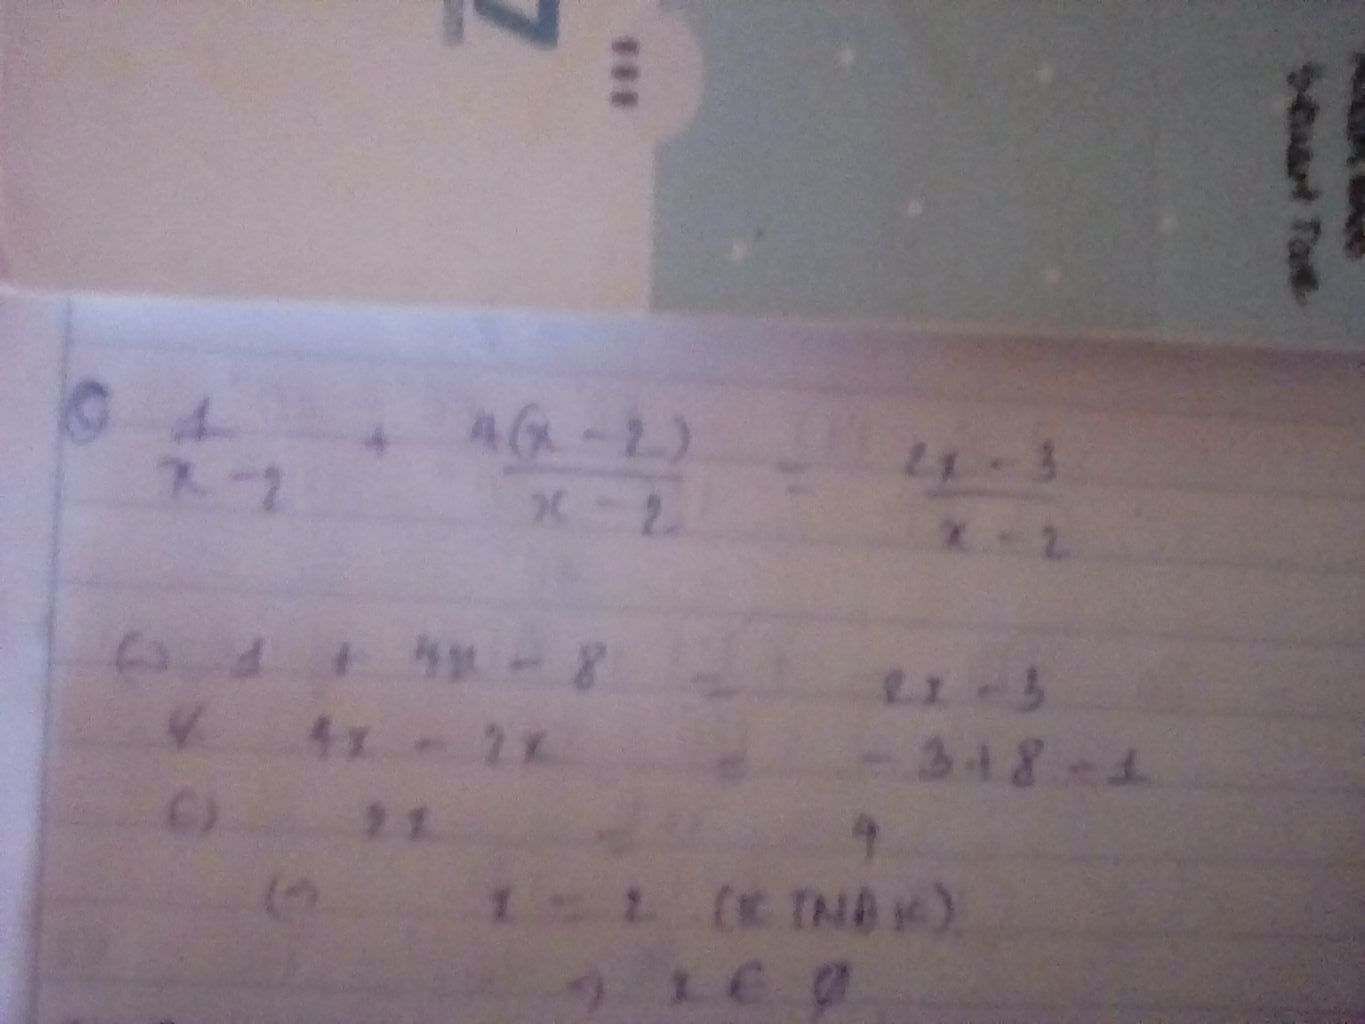 1/(x - 2) + 4(x - 2)/(x - 2) = (2x - 3)/(x - 2)
(=) 1 + 4x - 8 = 2x - 3
4x - 2x = - 3 + 8 - 1
(=) 2x = 4
(=) x = 2 (K TMĐK)
=> x ∈ Ø